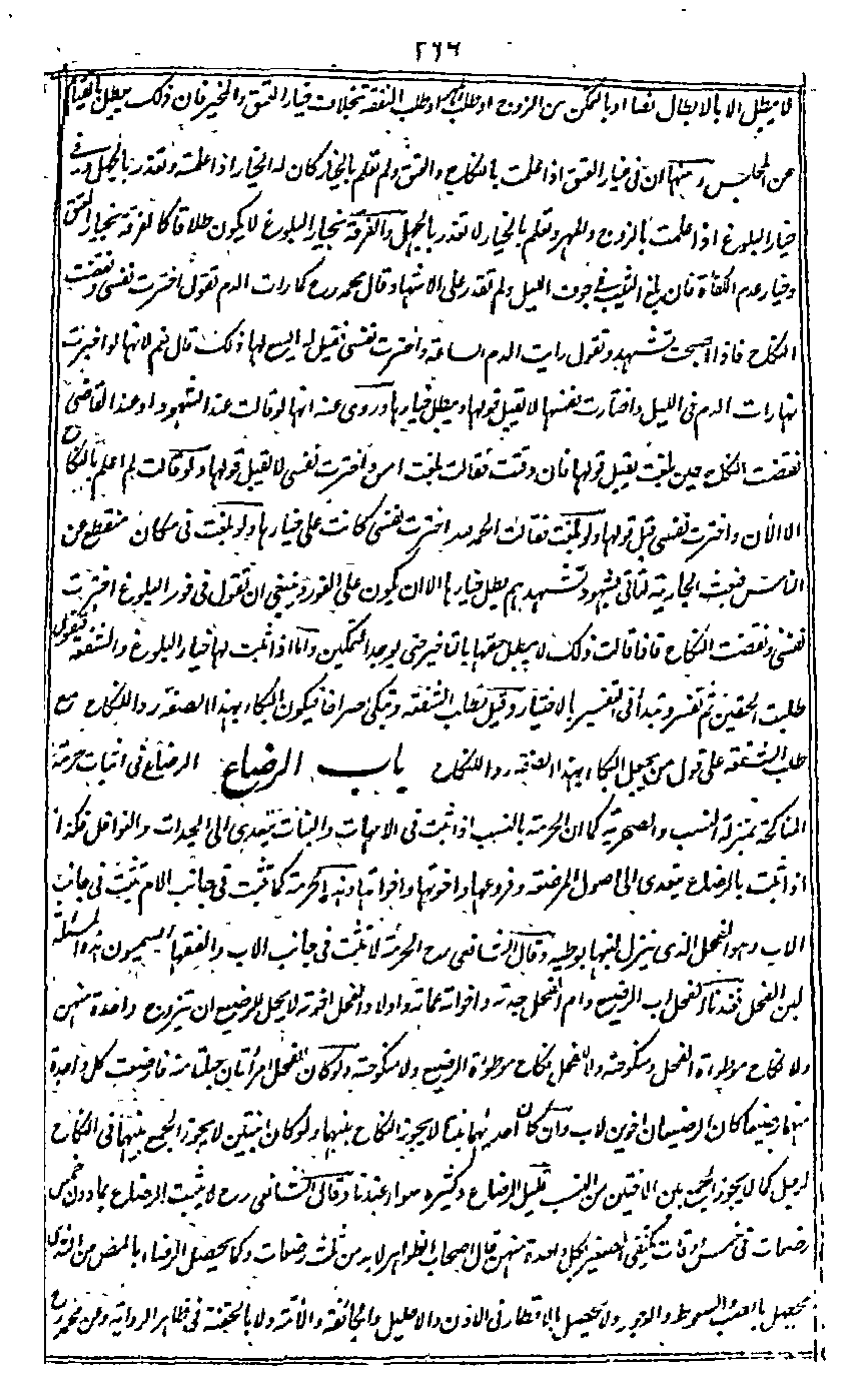 ٢٦٦
لا يبطل الا بالابطال نصا او بالتمكن من الزوج او طلب المهر او طلب النفقة بخلاف خيار العتق والمخير فان ذلك يبطل بالقيام
عن المجلس ومنها ان فى خيار العتق اذا علمت بالنكاح والعتق ولم تعلم بالخيار كان لها الخيار اذا علمت وتعذر بالجهل وفى
خيار البلوغ اذا علمت بالزوج والمهر ولم تعلم بالخيار لا تعذر بالجهل والفرقة بخيار البلوغ لا يكون طلاقا كالفرقة بخيار العتق
وخيار عدم الكفاءة فان بلغ الثيب فى جوف الليل ولم تقدر على الاشهاد وقال محمد رح كما رات الدم تقول اخترت نفسى ونقضت
النكاح فاذا اصبحت تشهد وتقول رايت الدم الساعة واخترت نفسى فقيل له ايسع لها ذلك قال نعم لانها لو اخبرت
انها رات الدم فى الليل واختارت نفسها لا تقبل قولها ويبطل خيارها وروى عنه انها لو قالت عند الشهود او عند القاضى
نقضت النكاح حين بلغت يقبل قولها فان وقتت فقالت بلغت امس واخترت نفسى لا تقبل قولها ولو قالت لم اعلم بالنكاح
الا الآن واخترت نفسى قبل قولها ولو بلغت فقالت الحمد لله اخترت نفسى كانت على خيارها ولو بلغت فى مكان منقطع عن
الناس فبعثت الجارية لتاتى بشهود تشهدهم يبطل خيارها الا ان يكون على الفور وينبغى ان تقول فى فور البلوغ اخترت
نفسى ونقضت النكاح فاذا قالت ذلك لا يبطل حقها بالتاخير حتى يوجد التمكين واما اذا ثبت لها خيار البلوغ والشفعة فتقول
طلبت الحقين ثم تفسر وتبدأ فى التفسير بالاختيار وقيل تطلب الشفعة وتبكى صراخا فيكون البكاء بهذه الصفة ردا للنكاح مع
طلب الشفعة على قول من يجعل البكاء بهذه الصفة ردا للنكاح باب الرضاع الرضاع فى اثبات حرمة
المناكحة بمنزلة النسب والصهرية كما ان الحرمة بالنسب اذا ثبت فى الامهات والبنات يتعدى الى الجدات والنوافل فكذا
اذا ثبت بالرضاع يتعدى الى اصول المرضعة وفروعها واخوتها واخواتها وهذه الحرمة كما تثبت فى جانب الام تثبت فى جانب
الاب وهو الفحل الذى ينزل لبنها بوطيه وقال الشافعى رح الحرمة لا تثبت فى جانب الاب والفقهاء يسمون هذه المسئلة
لبن الفحل فعندنا الفحل اب الرضيع وام الفحل جدته واخواته عماته واولاد الفحل اخوته لا يحل للرضيع ان يتزوج واحدة منهن
ولا نكاح موطوءة الفحل ومنكوحته ولا للفحل نكاح موطوءة الرضيع ولا منكوحته ولو كان للفحل امرأتان حبلتا منه فارضعت كل واحدة
منهما رضيعا كان الرضيعان اخوين لاب وان كان احدهما بنتا لا يجوز النكاح بينهما ولو كانا بنتين لا يجوز الجمع بينهما فى النكاح
لرجل كما لا يجوز الجمع بين الاختين من النسب قليل الرضاع وكثيره سواء عندنا وقال الشافعى رح لا يثبت الرضاع بما دون خمس
رضعات فى خمس اوقات يكتفى الصغير بكل واحدة منهن قال اصحاب الظواهر لابد من ثلث رضعات وكما يحصل الرضاع بالمص من الثدى
يحصل بالصب والسعوط والوجور ولا يحصل بالاقطار فى الاذن والاحليل والجائفة والآمة ولا بالحقنة فى ظاهر الرواية وعن محمد رح